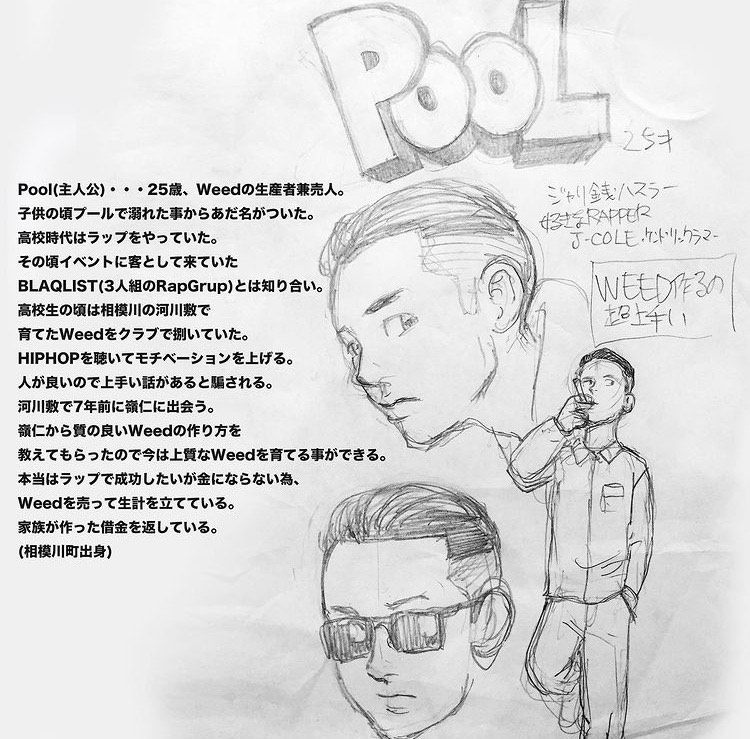 POOL
25才
ジャリ銭ハスラー
好きなRAPPER
J-COLE.ケンドリックラマー
WEED作るの
超上手い
Pool(主人公)・・・25歳、Weedの生産者兼売人。
子供の頃プールで溺れた事からあだ名がついた。
高校時代はラップをやっていた。
その頃イベントに客として来ていた
BLAQLIST(3人組のRapGrup)とは知り合い。
高校生の頃は相模川の河川敷で
育てたWeedをクラブで捌いていた。
HIPHOPを聴いてモチベーションを上げる。
人が良いので上手い話があると騙される。
河川敷で7年前に嶺仁に出会う。
嶺仁から質の良いWeedの作り方を
教えてもらったので今は上質なWeedを育てる事ができる。
本当はラップで成功したいが金にならない為、
Weedを売って生計を立てている。
家族が作った借金を返している。
(相模川町出身)